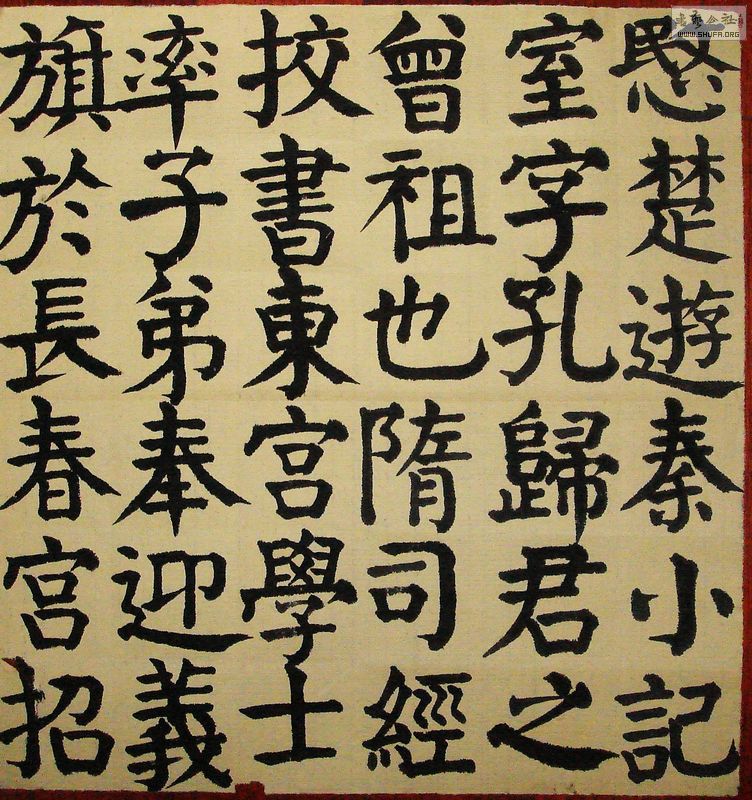 愍楚遊秦小記
室字孔歸君之
曾祖也隋司經
挍書東宮學士
率子弟奉迎義
旗於長春宮招
书艺公社
WWW.SHUFA.ORG